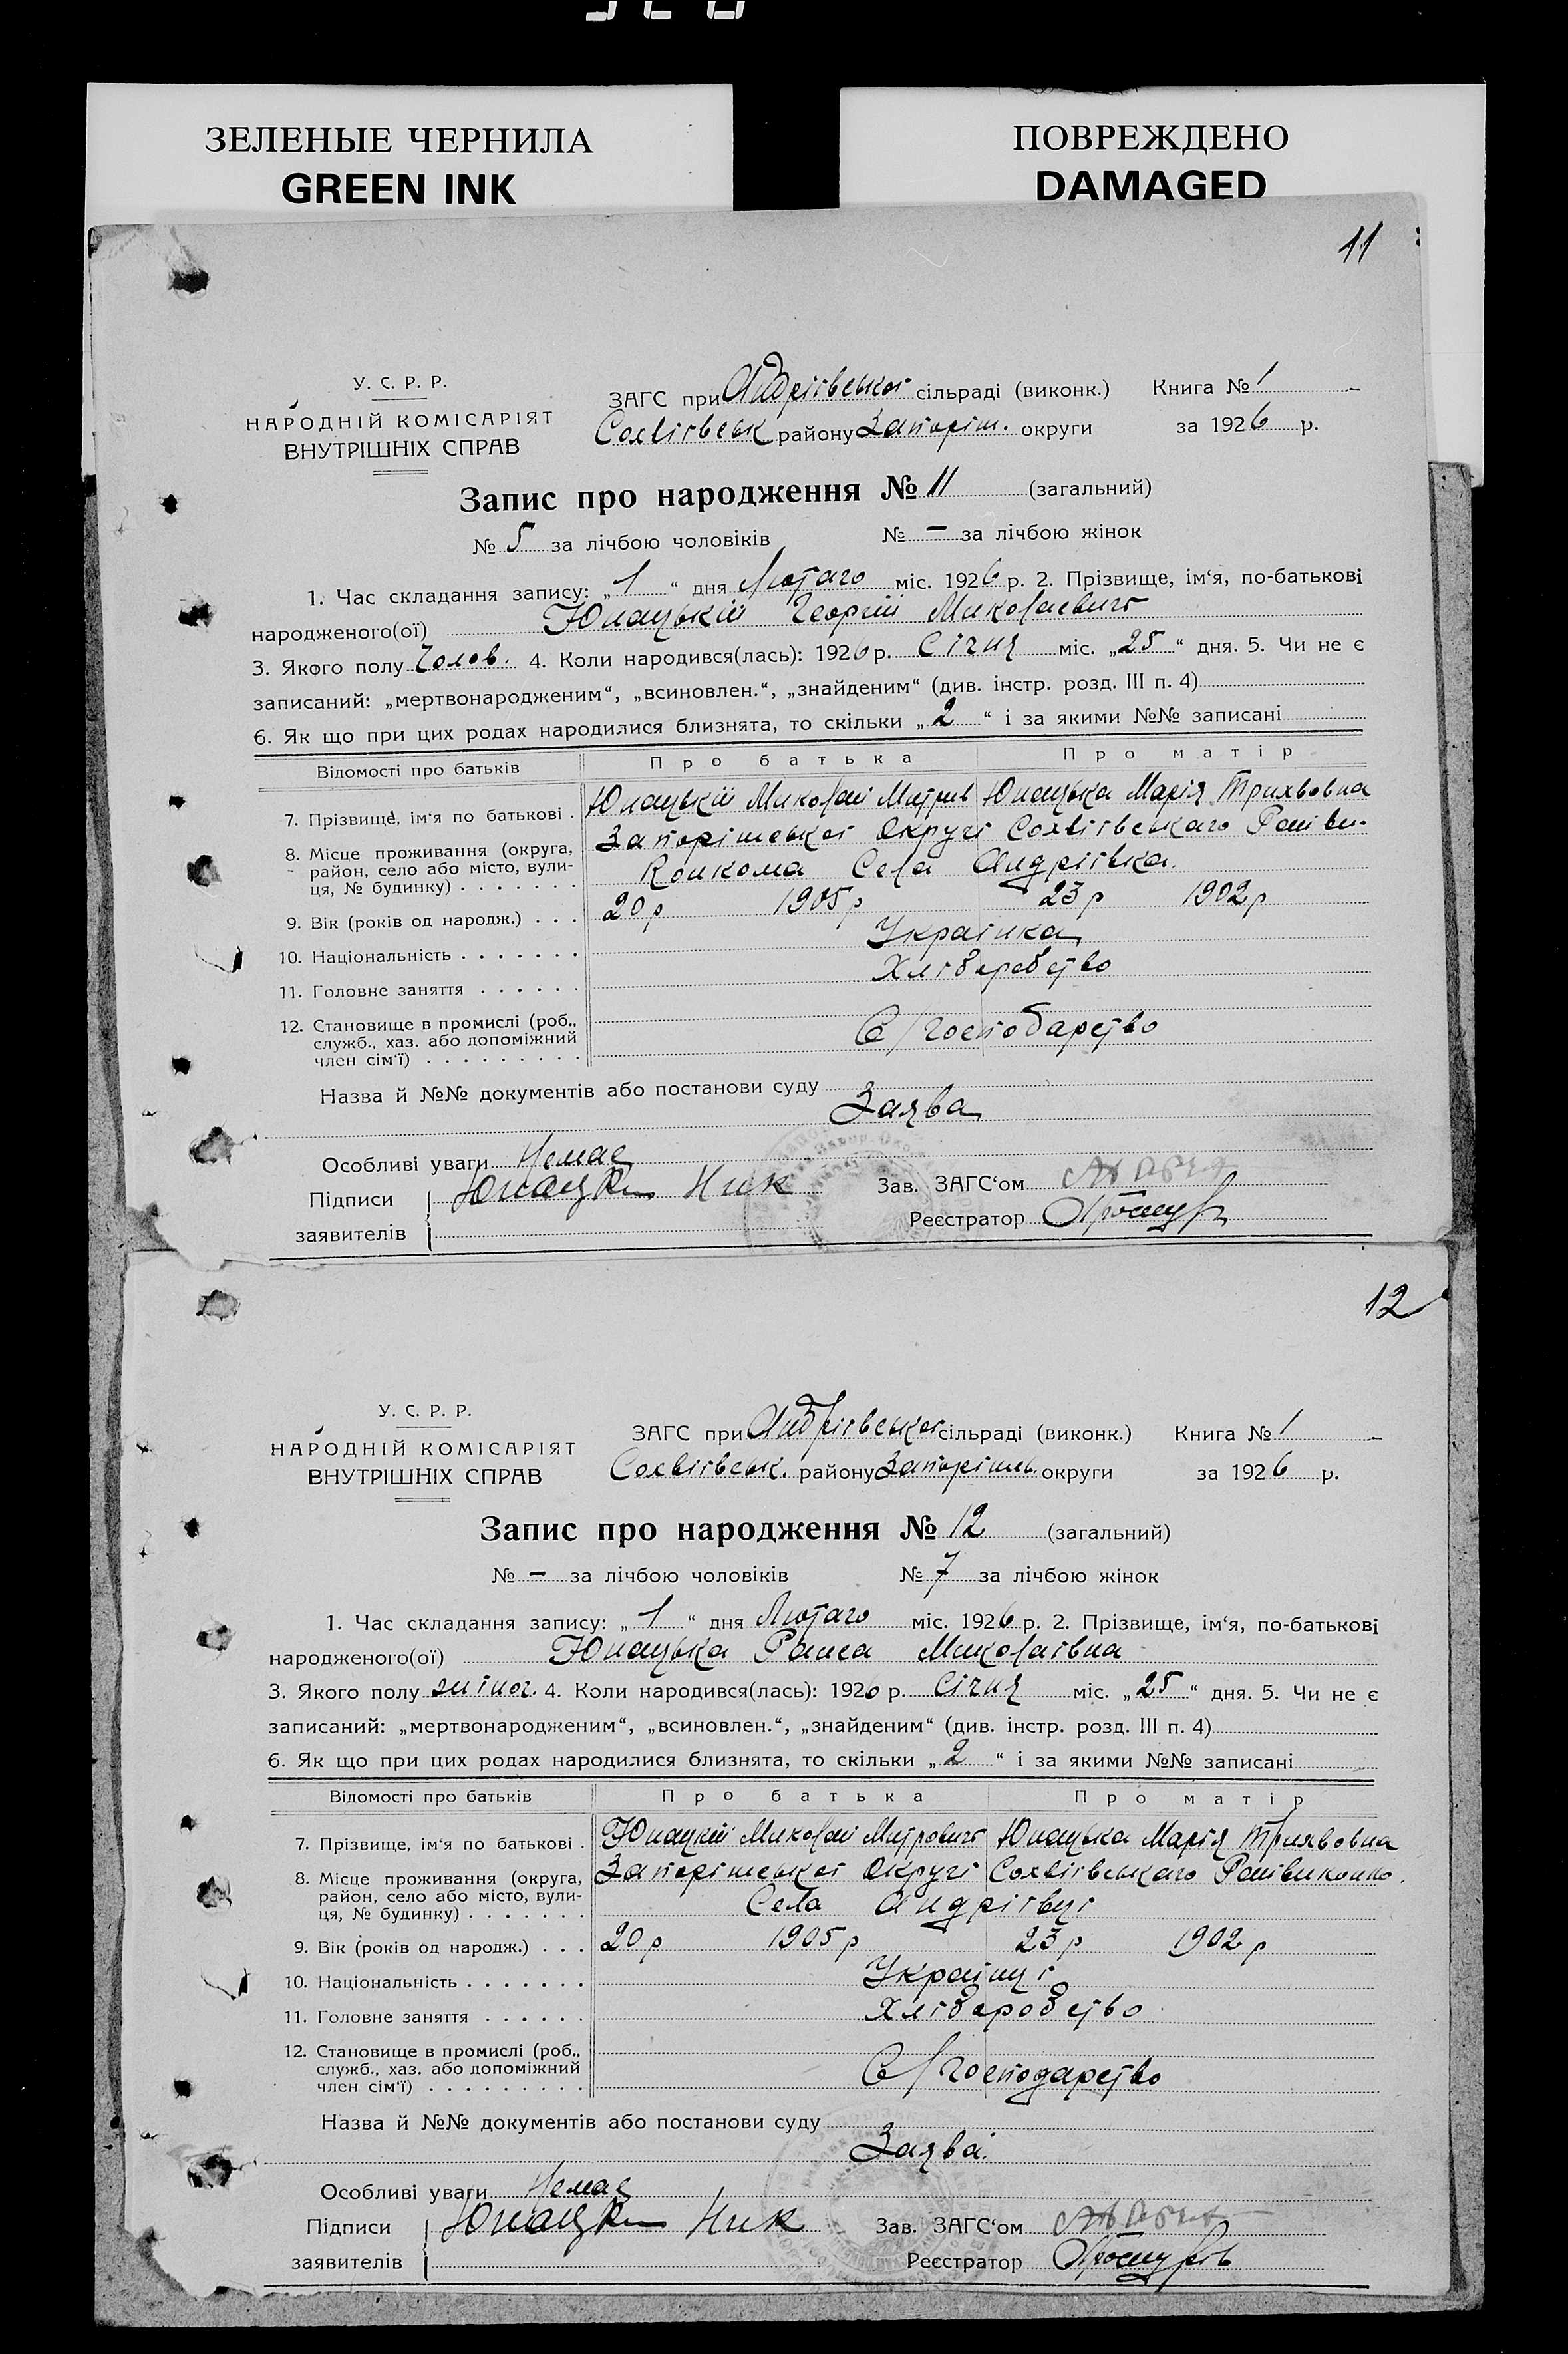 ЗЕЛЕНЫЕ ЧЕРНИЛА
GREEN INK
ПОВРЕЖДЕНО
DAMAGED
11
У. С. Р. Р.
НАРОДНІЙ КОМІСАРІЯТ
ВНУТРІШНІХ СПРАВ
ЗАГС при Андріївської сільраді (виконк.) Книга № 1
Софіівськ району Запоріж. округи за 1926 р.
Запис про народження № 11 (загальний)
№ 5 за лічбою чоловіків № — за лічбою жінок
1. Час складання запису: „1“ дня Лютаго міс. 1926 р. 2. Прізвище, ім‘я, по-батькові
народженого(ої) Юнацький Георгій Миколаевич
3. Якого полу Чолов. 4. Коли народився(лась): 1926 р. Січня міс. „25“ дня. 5. Чи не є
записаний: „мертвонародженим“, „всиновлен.“, „знайденим“ (див. інстр. розд. III п. 4)
6. Як що при цих родах народилися близнята, то скільки „2“ і за якими №№ записані
Відомості про батьків Про батька Про матір
7. Прізвище, ім‘я по батькові . Юнацькій Миколай Митрив Юнацька Марія
8. Місце проживання (округа, район, село або місто, вули- ця, № будинку) Запоріжської Округі
Села Андріівка.
9. Вік (років од народж.) . . . 20 р 1905 р 23 р 1902 р
10. Національність Украінка
11. Головне заняття Хліборобство
12. Становище в промислі (роб., служб., хаз. або допоміжний член сім‘ї) С/господарство
Назва й №№ документів або постанови суду
Заява
Особливі уваги Немає
Підписи Юнацкий Ник Зав. ЗАГС‘ом
заявителів Реєстратор
12
У. С. Р. Р.
НАРОДНІЙ КОМІСАРІЯТ
ВНУТРІШНІХ СПРАВ
ЗАГС при Андріївської сільраді (виконк.) Книга № 1
Софіівськ. району Запоріжев. округи за 1926 р.
Запис про народження № 12 (загальний)
№ — за лічбою чоловіків № 7 за лічбою жінок
1. Час складання запису: „1“ дня Лютаго міс. 1926 р. 2. Прізвище, ім‘я, по-батькові
народженого(ої) Юнацька Раиса Миколаівна
3. Якого полу жіноч. 4. Коли народився(лась): 1926 р. Січня міс. „25“ дня. 5. Чи не є
записаний: „мертвонародженим“, „всиновлен.“, „знайденим“ (див. інстр. розд. III п. 4)
6. Як що при цих родах народилися близнята, то скільки „2“ і за якими №№ записані
Відомості про батьків Про батька Про матір
7. Прізвище, ім‘я по батькові . Юнацкий Миколай Митрович Юнацька Марія
8. Місце проживання (округа, район, село або місто, вули- ця, № будинку) Запоріжської Округі
Села Андріівці
9. Вік (років од народж.) . . . 20 р 1905 р 23 р 1902 р
10. Національність Украінці
11. Головне заняття Хліборобство
12. Становище в промислі (роб., служб., хаз. або допоміжний член сім‘ї) С/господарство
Назва й №№ документів або постанови суду
Заява.
Особливі уваги Немає
Підписи Юнацкий Ник Зав. ЗАГС‘ом
заявителів Реєстратор